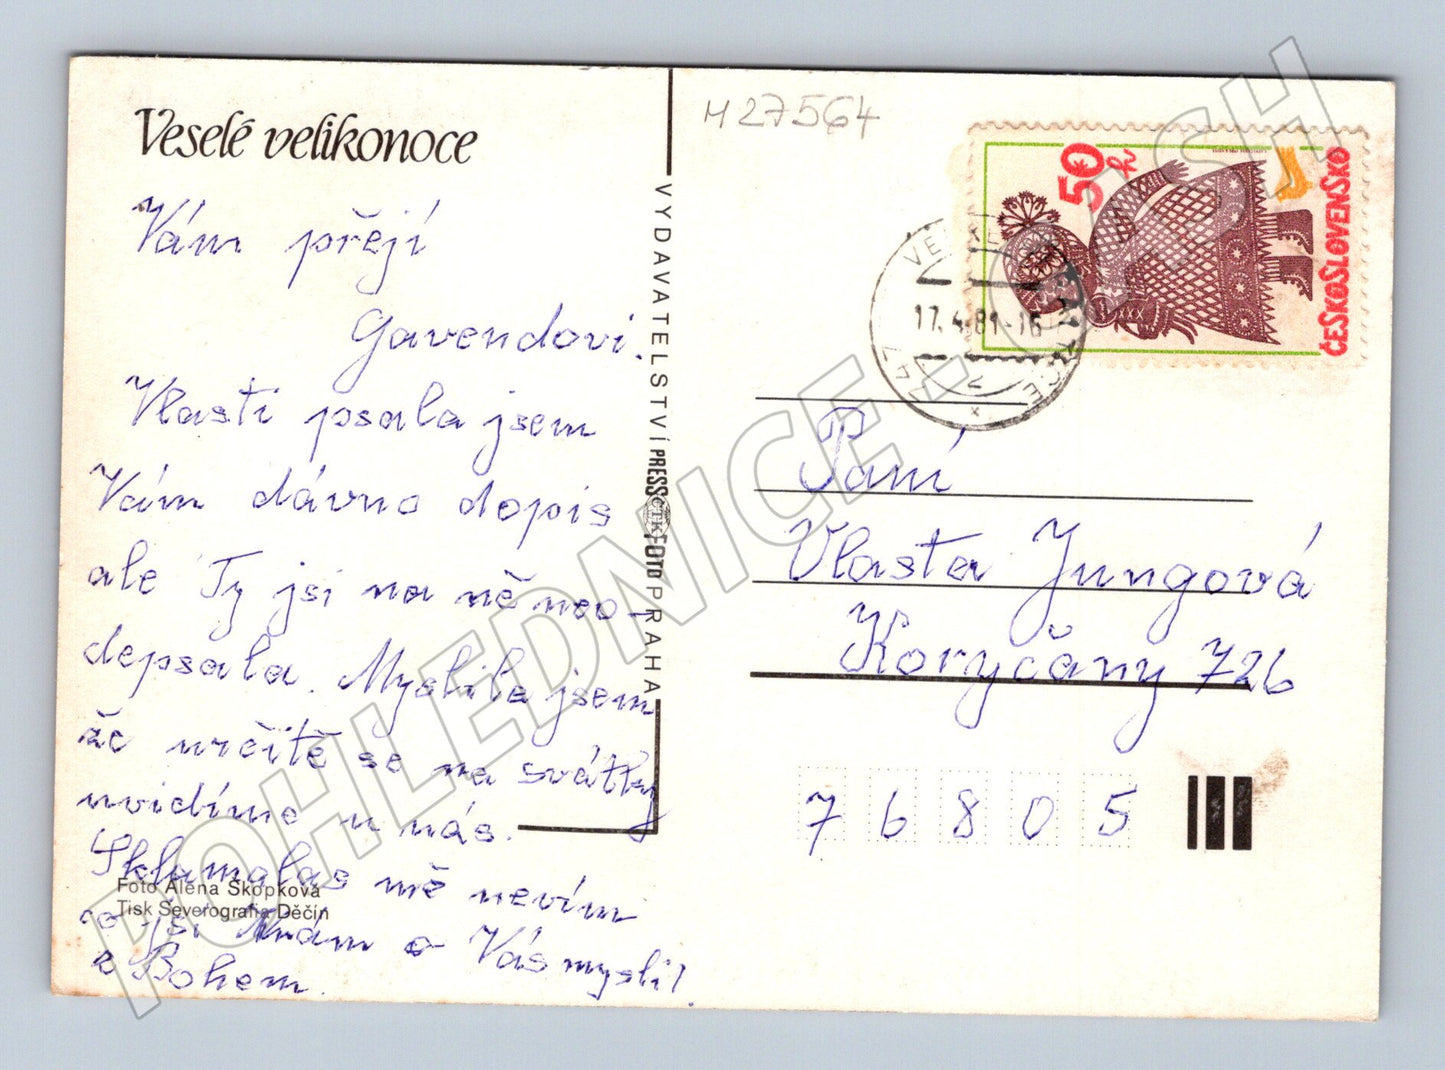 Veselé velikonoce
Vám přejí
Gavendovi.
Vlasti psala jsem
Vám dávno dopis
ale Ty jsi na ně neo-
depsala. Myslila jsem
že určitě se na svátky
uvidíme u nás.
Sklamalas mě nevím
co jsi
o Vás myslil
s Bohem.
Foto Alena Skopková
Tisk Severografia Děčín
VYDAVATELSTVÍ PRESSFOTO PRAHA
ČTK
M 27564
50 h
ČESKOSLOVENSKO
17.4.81-16
Paní
Vlasta Jungová
Koryčany 726
76805
POHLEDNICE-CASH